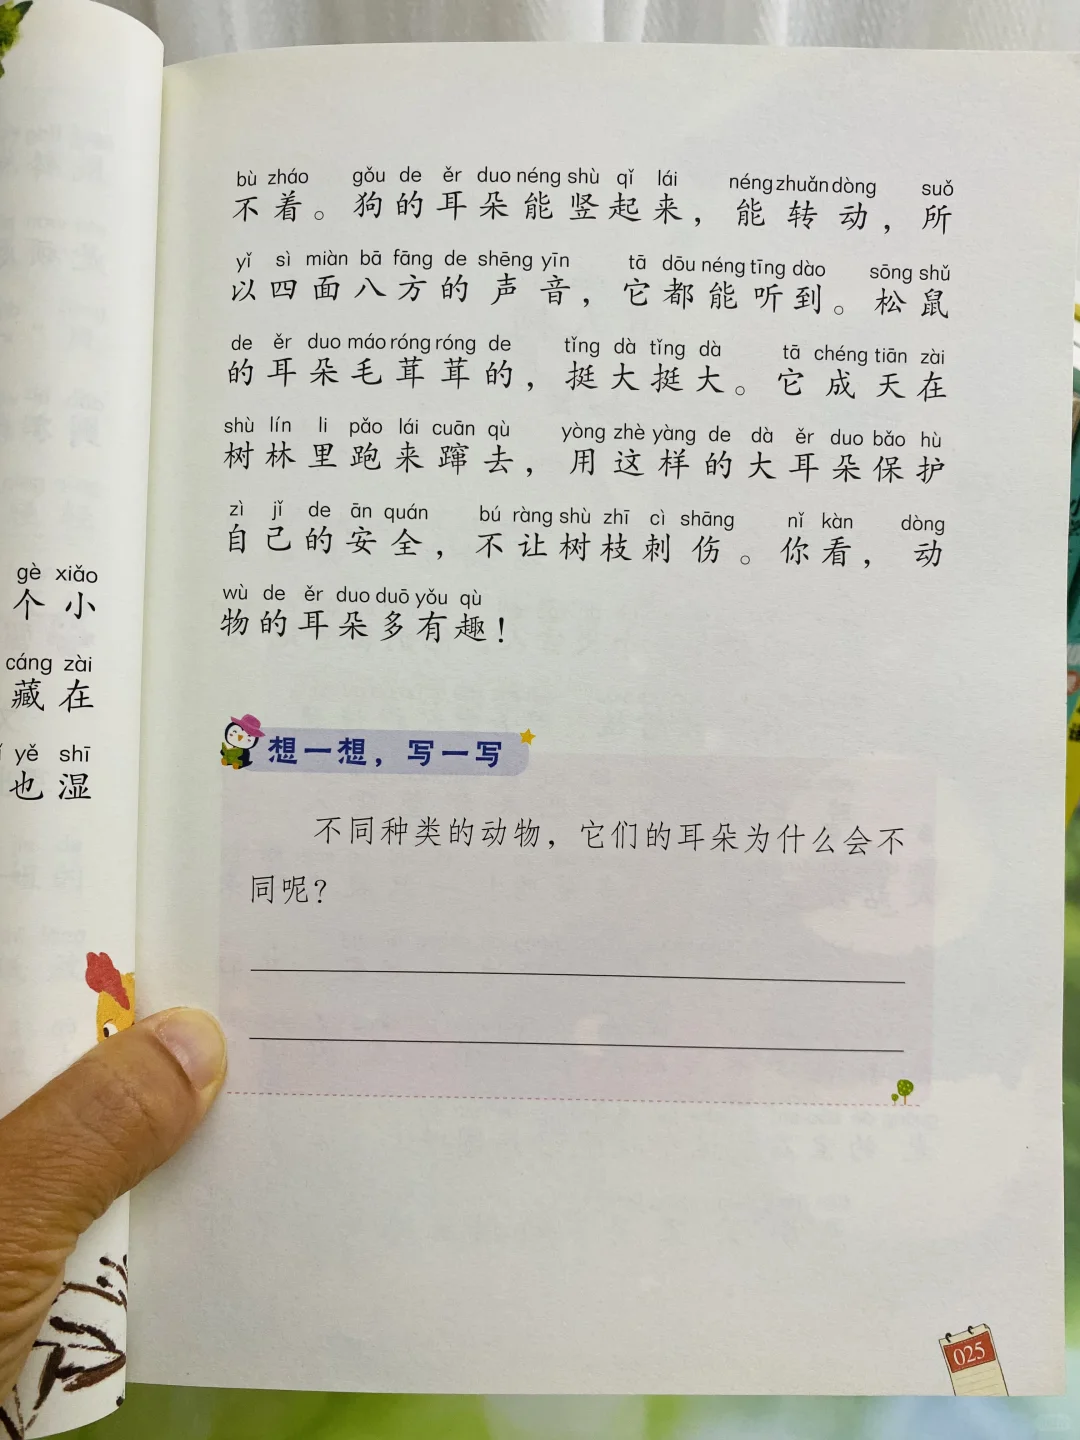 gè xiǎo
个小
cáng zài
藏在
yě shī
也湿
bù zháo gǒu de ěr duo néng shù qǐ lái néng zhuǎn dòng suǒ
不着。狗的耳朵能竖起来，能转动，所
yǐ sì miàn bā fāng de shēng yīn tā dōu néng tīng dào sōng shǔ
以四面八方的声音，它都能听到。松鼠
de ěr duo máo róng róng de tǐng dà tǐng dà tā chéng tiān zài
的耳朵毛茸茸的，挺大挺大。它成天在
shù lín li pǎo lái cuān qù yòng zhè yàng de dà ěr duo bǎo hù
树林里跑来蹿去，用这样的大耳朵保护
zì jǐ de ān quán bú ràng shù zhī cì shāng nǐ kàn dòng
自己的安全，不让树枝刺伤。你看，动
wù de ěr duo duō yǒu qù
物的耳朵多有趣！
想一想，写一写
不同种类的动物，它们的耳朵为什么会不
同呢？
025